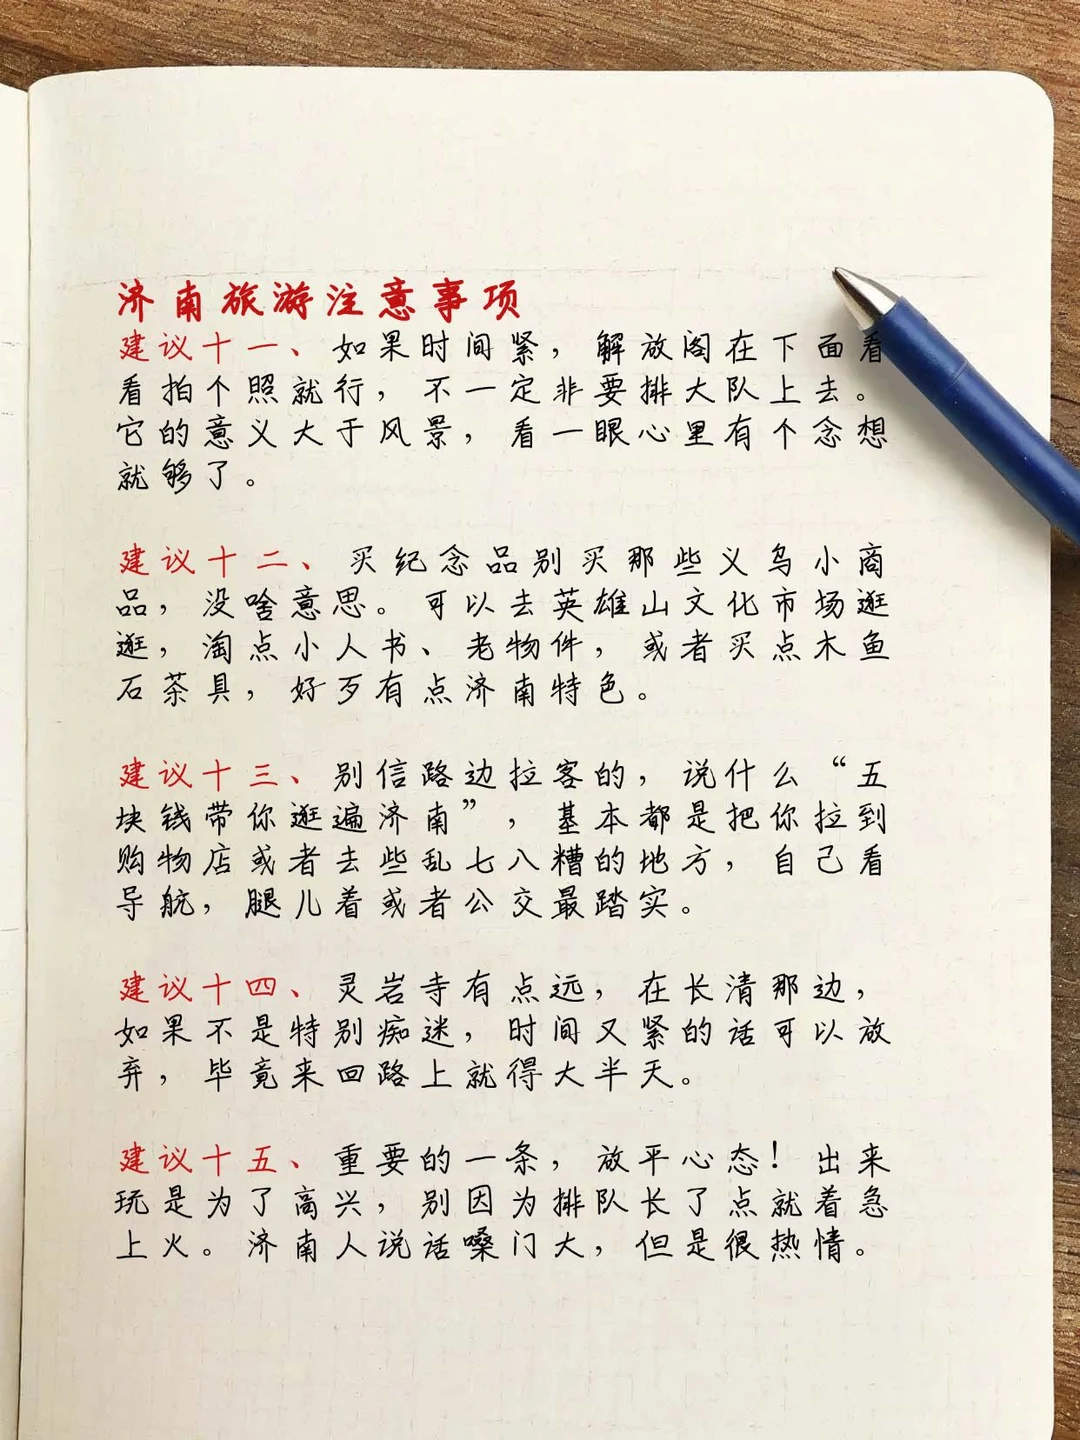 济南旅游注意事项
建议十一、如果时间紧，解放阁在下面看
看拍个照就行，不一定非要排大队上去。
它的意义大于风景，看一眼心里有个念想
就够了。
建议十二、买纪念品别买那些义乌小商
品，没啥意思。可以去英雄山文化市场逛
逛，淘点小人书、老物件，或者买点木鱼
石茶具，好歹有点济南特色。
建议十三、别信路边拉客的，说什么“五
块钱带你逛遍济南”，基本都是把你拉到
购物店或者去些乱七八糟的地方，自己看
导航，腿儿着或者公交最踏实。
建议十四、灵岩寺有点远，在长清那边，
如果不是特别痴迷，时间又紧的话可以放
弃，毕竟来回路上就得大半天。
建议十五、重要的一条，放平心态！出来
玩是为了高兴，别因为排队长了点就着急
上火。济南人说话嗓门大，但是很热情。